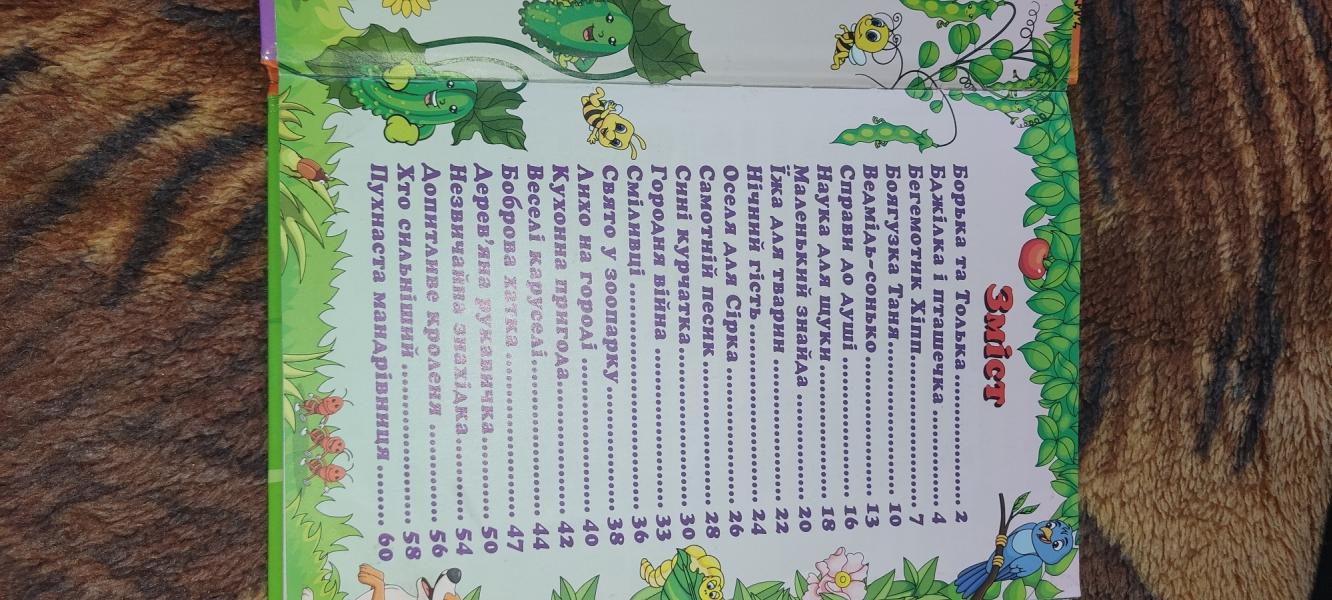 Зміст
Борька та Толька ............... 2
Бджілка і пташечка ............ 4
Бегемотик Хіпп................. 7
Боягузка Таня................. 10
Ведмідь-сонько ................ 13
Справи до душі ................ 16
Наука для щуки ................ 18
Маленький знайда .............. 20
Їжа для тварин ................ 22
Нічний гість................... 24
Оселя для Сірка ............... 26
Самотній песик ................ 28
Сині курчатка.................. 30
Городня війна ................. 33
Сміливці ...................... 36
Свято у зоопарку............... 38
Лихо на городі ................ 40
Кухонна пригода................ 42
Веселі каруселі................ 44
Боброва хатка ................. 47
Дерев’яна рукавичка............ 50
Незвичайна знахідка............ 54
Допитливе кроленя ............. 56
Хто сильніший ................. 58
Пухнаста мандрівниця .......... 60